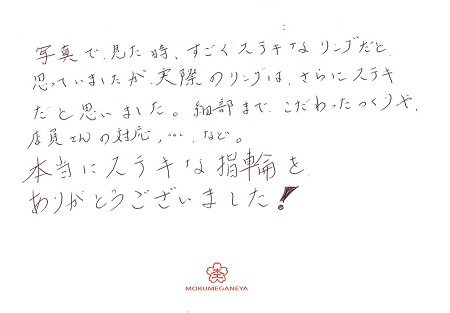 写真で、見た時、すごくステキなリングだと、
思っていましたが、実際のリングは、さらにステキ
だと思いました。細部まで、こだわったつくりや、
店員さんの対応、…、など。
本当にステキな指輪を
ありがとうございました!
MOKUMEGANEYA